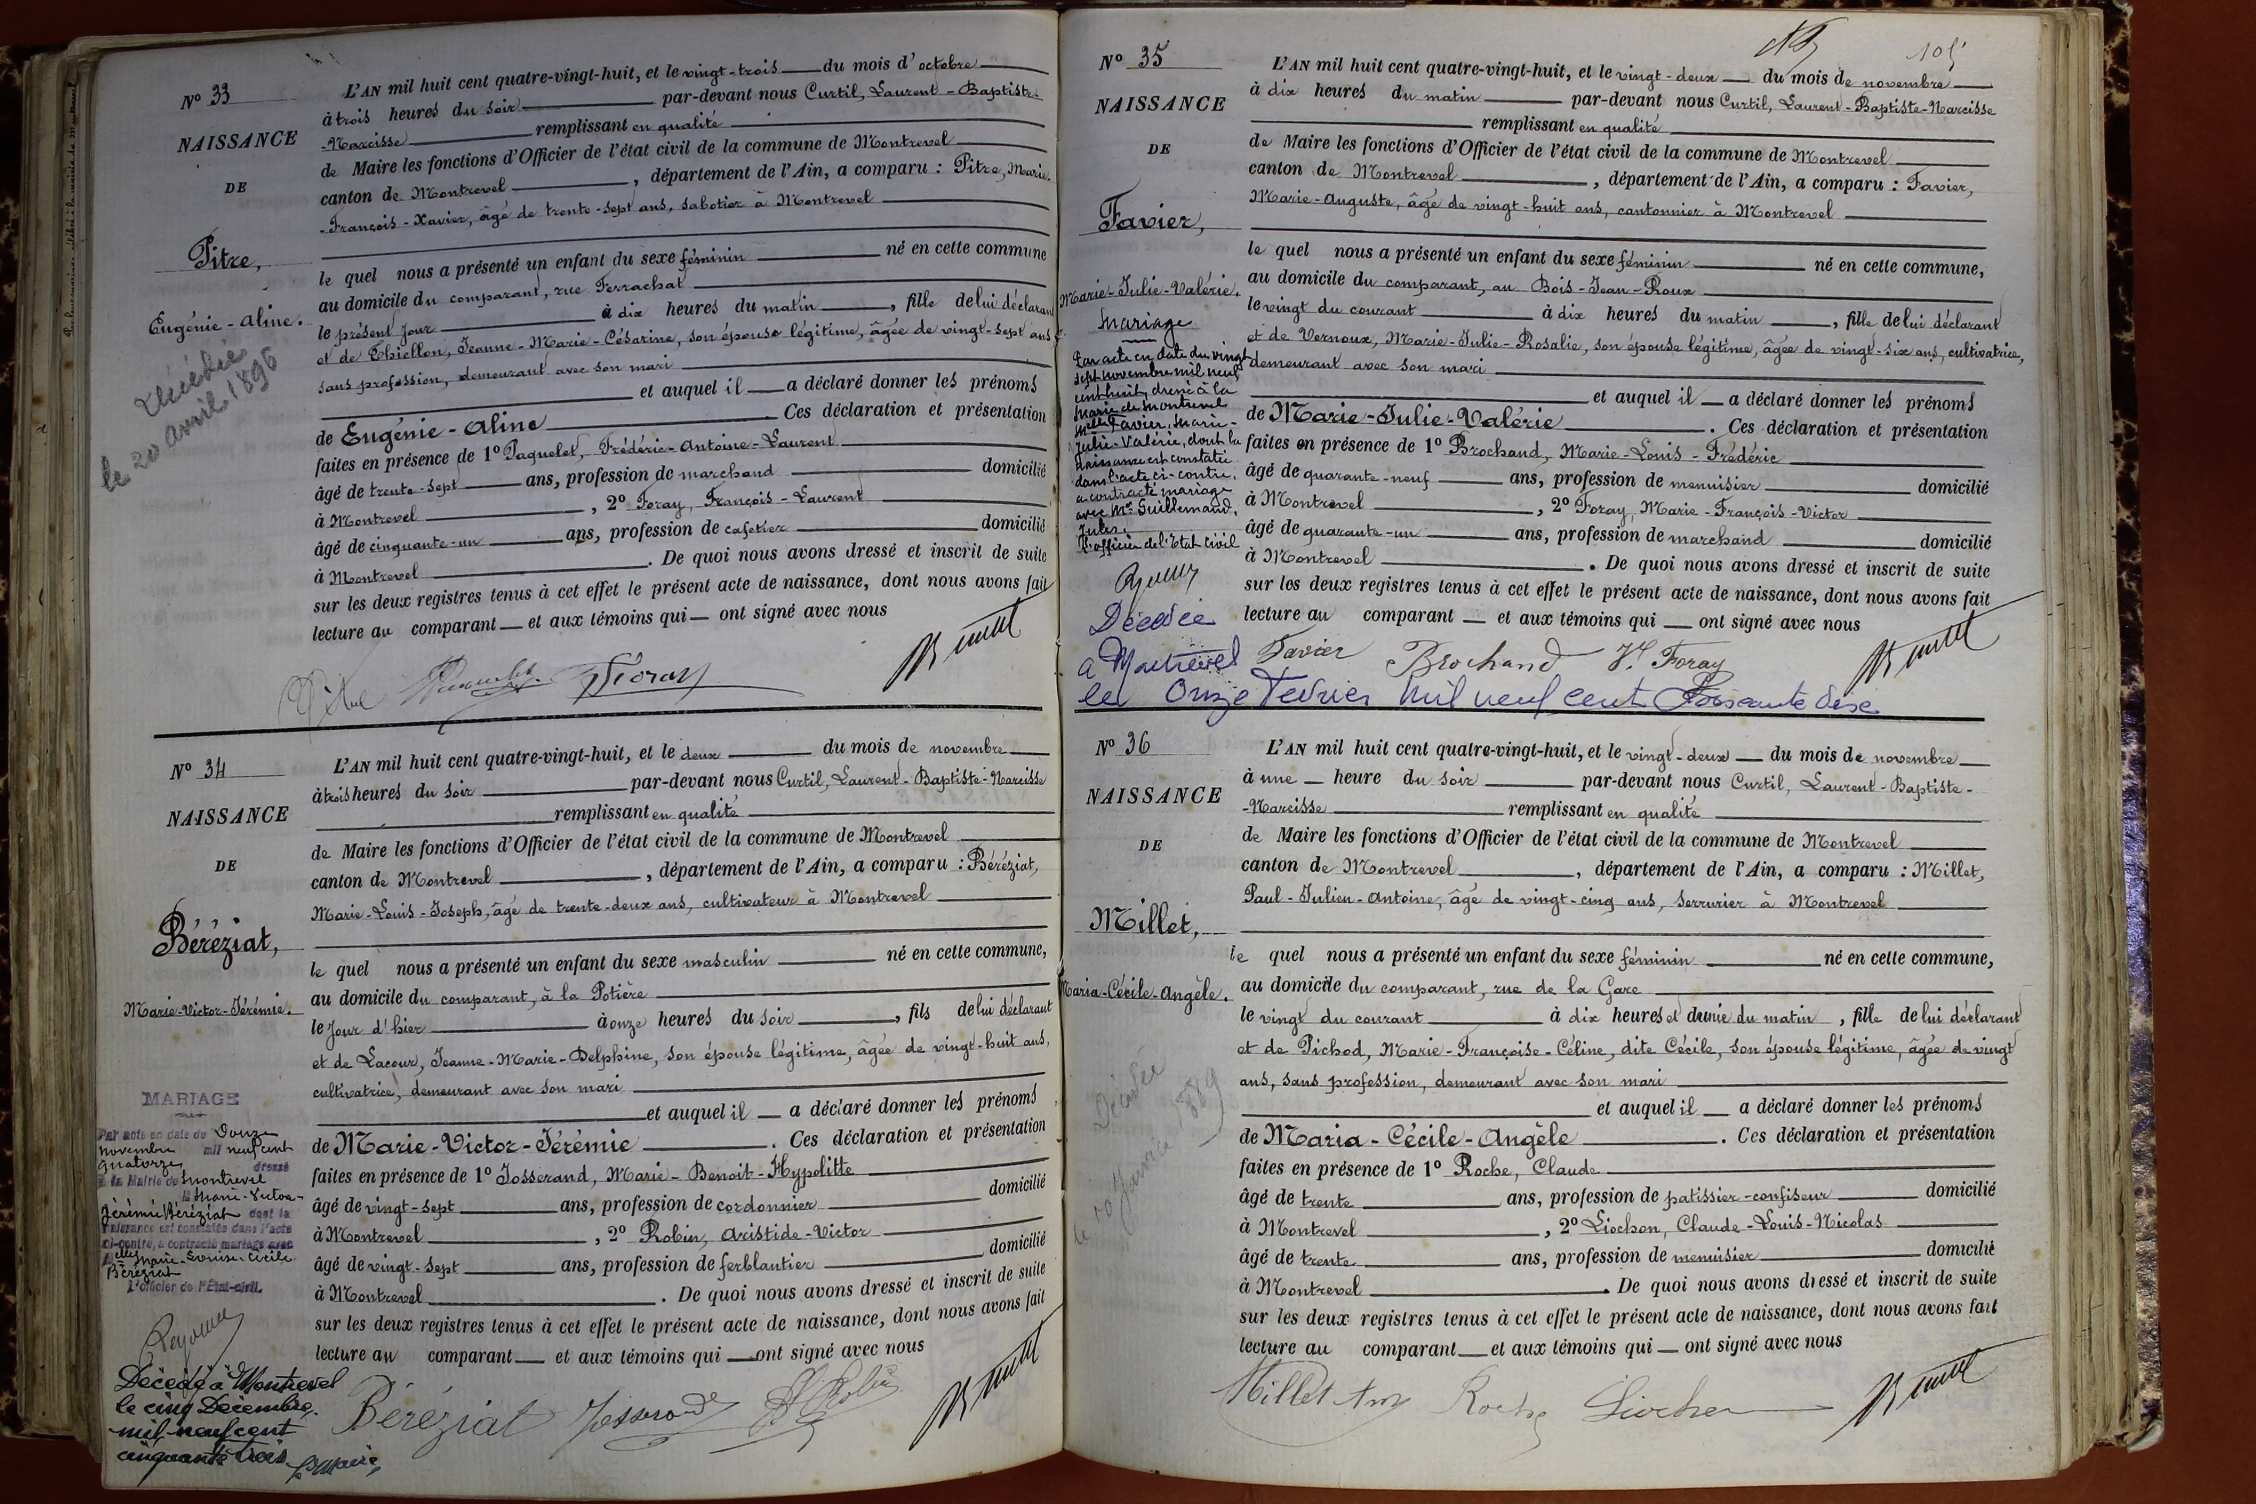 N° 33
NAISSANCE
DE
Pitre,
Eugénie-Aline.
Décédée
le 20 avril 1896
L'AN mil huit cent quatre-vingt-huit, et le vingt-trois du mois d'octobre
à trois heures du soir par-devant nous Curtil, Laurent-Baptiste-
-Narcisse remplissant en qualité
de Maire les fonctions d'Officier de l'état civil de la commune de Montrevel
canton de Montrevel, département de l'Ain, a comparu : Pitre, Marie-
-François-Xavier, âgé de trente-sept ans, sabotier à Montrevel
le quel nous a présenté un enfant du sexe féminin né en cette commune
au domicile du comparant, rue Ferrachat
le présent jour à dix heures du matin, fille de lui déclarant
et de Thiellon, Jeanne-Marie-Césarine, son épouse légitime, âgée de vingt-sept ans
sans profession, demeurant avec son mari
et auquel il a déclaré donner les prénoms
de Eugénie-Aline Ces déclaration et présentation
faites en présence de 1° Paquelet, Frédéric-Antoine-Laurent
âgé de trente-sept ans, profession de marchand domicilié
à Montrevel, 2° Foray, François-Laurent
âgé de cinquante-un ans, profession de cafetier domicilié
à Montrevel. De quoi nous avons dressé et inscrit de suite
sur les deux registres tenus à cet effet le présent acte de naissance, dont nous avons fait
lecture au comparant et aux témoins qui ont signé avec nous
Pitre Foray
N° 34
NAISSANCE
DE
Béréziat,
Marie-Victor-Jérémie.
MARIAGE
Par acte en date du Douze
novembre mil neuf cent
quatorze dressé
à la Mairie de Montrevel
Marie-Victor-
Jérémie Béréziat dont la
naissance est constatée dans l'acte
ci-contre, a contracté mariage avec
Melle Marie-Louise-Cécile
Béréziat
L'officier de l'État-civil.
Décédé à Montrevel
le cinq Décembre
mil neuf cent
cinquante trois
Le Maire,
L'AN mil huit cent quatre-vingt-huit, et le deux du mois de novembre
à trois heures du soir par-devant nous Curtil, Laurent-Baptiste-Narcisse
remplissant en qualité
de Maire les fonctions d'Officier de l'état civil de la commune de Montrevel
canton de Montrevel, département de l'Ain, a comparu : Béréziat,
Marie-Louis-Joseph, âgé de trente-deux ans, cultivateur à Montrevel
le quel nous a présenté un enfant du sexe masculin né en cette commune,
au domicile du comparant, à la Potière
le jour d'hier à onze heures du soir, fils de lui déclarant
et de Lacour, Jeanne-Marie-Delphine, son épouse légitime, âgée de vingt-huit ans,
cultivatrice, demeurant avec son mari
et auquel il a déclaré donner les prénoms
de Marie-Victor-Jérémie. Ces déclaration et présentation
faites en présence de 1° Josserand, Marie-Benoit-Hypolitte
âgé de vingt-sept ans, profession de cordonnier domicilié
à Montrevel, 2° Robin, Aristide-Victor
âgé de vingt-sept ans, profession de ferblantier domicilié
à Montrevel. De quoi nous avons dressé et inscrit de suite
sur les deux registres tenus à cet effet le présent acte de naissance, dont nous avons fait
lecture au comparant et aux témoins qui ont signé avec nous
Béréziat Josserand A Robin
105
N° 35
NAISSANCE
DE
Favier,
Marie-Julie-Valérie.
Mariage
Par acte en date du vingt
sept novembre mil neuf
cent huit, dressé à la
Mairie de Montrevel
Melle Favier, Marie-
Julie-Valérie, dont la
naissance est constatée
dans l'acte ci-contre,
a contracté mariage
avec Mr Guillemaud,
Jules.
L'officier de l'État civil
Décédée
a Montrevel
le Onze Fevrier mil neuf cent soixante dix
L'AN mil huit cent quatre-vingt-huit, et le vingt-deux du mois de novembre
à dix heures du matin par-devant nous Curtil, Laurent-Baptiste-Narcisse
remplissant en qualité
de Maire les fonctions d'Officier de l'état civil de la commune de Montrevel
canton de Montrevel, département de l'Ain, a comparu : Favier,
Marie-Auguste, âgé de vingt-huit ans, cantonnier à Montrevel
le quel nous a présenté un enfant du sexe féminin né en cette commune,
au domicile du comparant, au Bois-Jean-Roux
le vingt du courant à dix heures du matin, fille de lui déclarant
et de Vernoux, Marie-Julie-Rosalie, son épouse légitime, âgée de vingt-six ans, cultivatrice,
demeurant avec son mari
et auquel il a déclaré donner les prénoms
de Marie-Julie-Valérie. Ces déclaration et présentation
faites en présence de 1° Brochand, Marie-Louis-Frédéric
âgé de quarante-neuf ans, profession de menuisier domicilié
à Montrevel, 2° Foray, Marie-François-Victor
âgé de quarante-un ans, profession de marchand domicilié
à Montrevel. De quoi nous avons dressé et inscrit de suite
sur les deux registres tenus à cet effet le présent acte de naissance, dont nous avons fait
lecture au comparant et aux témoins qui ont signé avec nous
Favier Brochand Vr Foray
N° 36
NAISSANCE
DE
Millet,
Maria-Cécile-Angèle.
Décédée
le 10 Janvier 1889
L'AN mil huit cent quatre-vingt-huit, et le vingt-deux du mois de novembre
à une heure du soir par-devant nous Curtil, Laurent-Baptiste-
-Narcisse remplissant en qualité
de Maire les fonctions d'Officier de l'état civil de la commune de Montrevel
canton de Montrevel, département de l'Ain, a comparu : Millet,
Paul-Julien-Antoine, âgé de vingt-cinq ans, serrurier à Montrevel
le quel nous a présenté un enfant du sexe féminin né en cette commune,
au domicile du comparant, rue de la Gare
le vingt du courant à dix heures et demie du matin, fille de lui déclarant
et de Pichod, Marie-Françoise-Céline, dite Cécile, son épouse légitime, âgée de vingt
ans, sans profession, demeurant avec son mari
et auquel il a déclaré donner les prénoms
de Maria-Cécile-Angèle. Ces déclaration et présentation
faites en présence de 1° Roche, Claude
âgé de trente ans, profession de patissier-confiseur domicilié
à Montrevel, 2° Liochon, Claude-Louis-Nicolas
âgé de trente ans, profession de menuisier domicilié
à Montrevel. De quoi nous avons dressé et inscrit de suite
sur les deux registres tenus à cet effet le présent acte de naissance, dont nous avons fait
lecture au comparant et aux témoins qui ont signé avec nous
Millet Roche Liochon